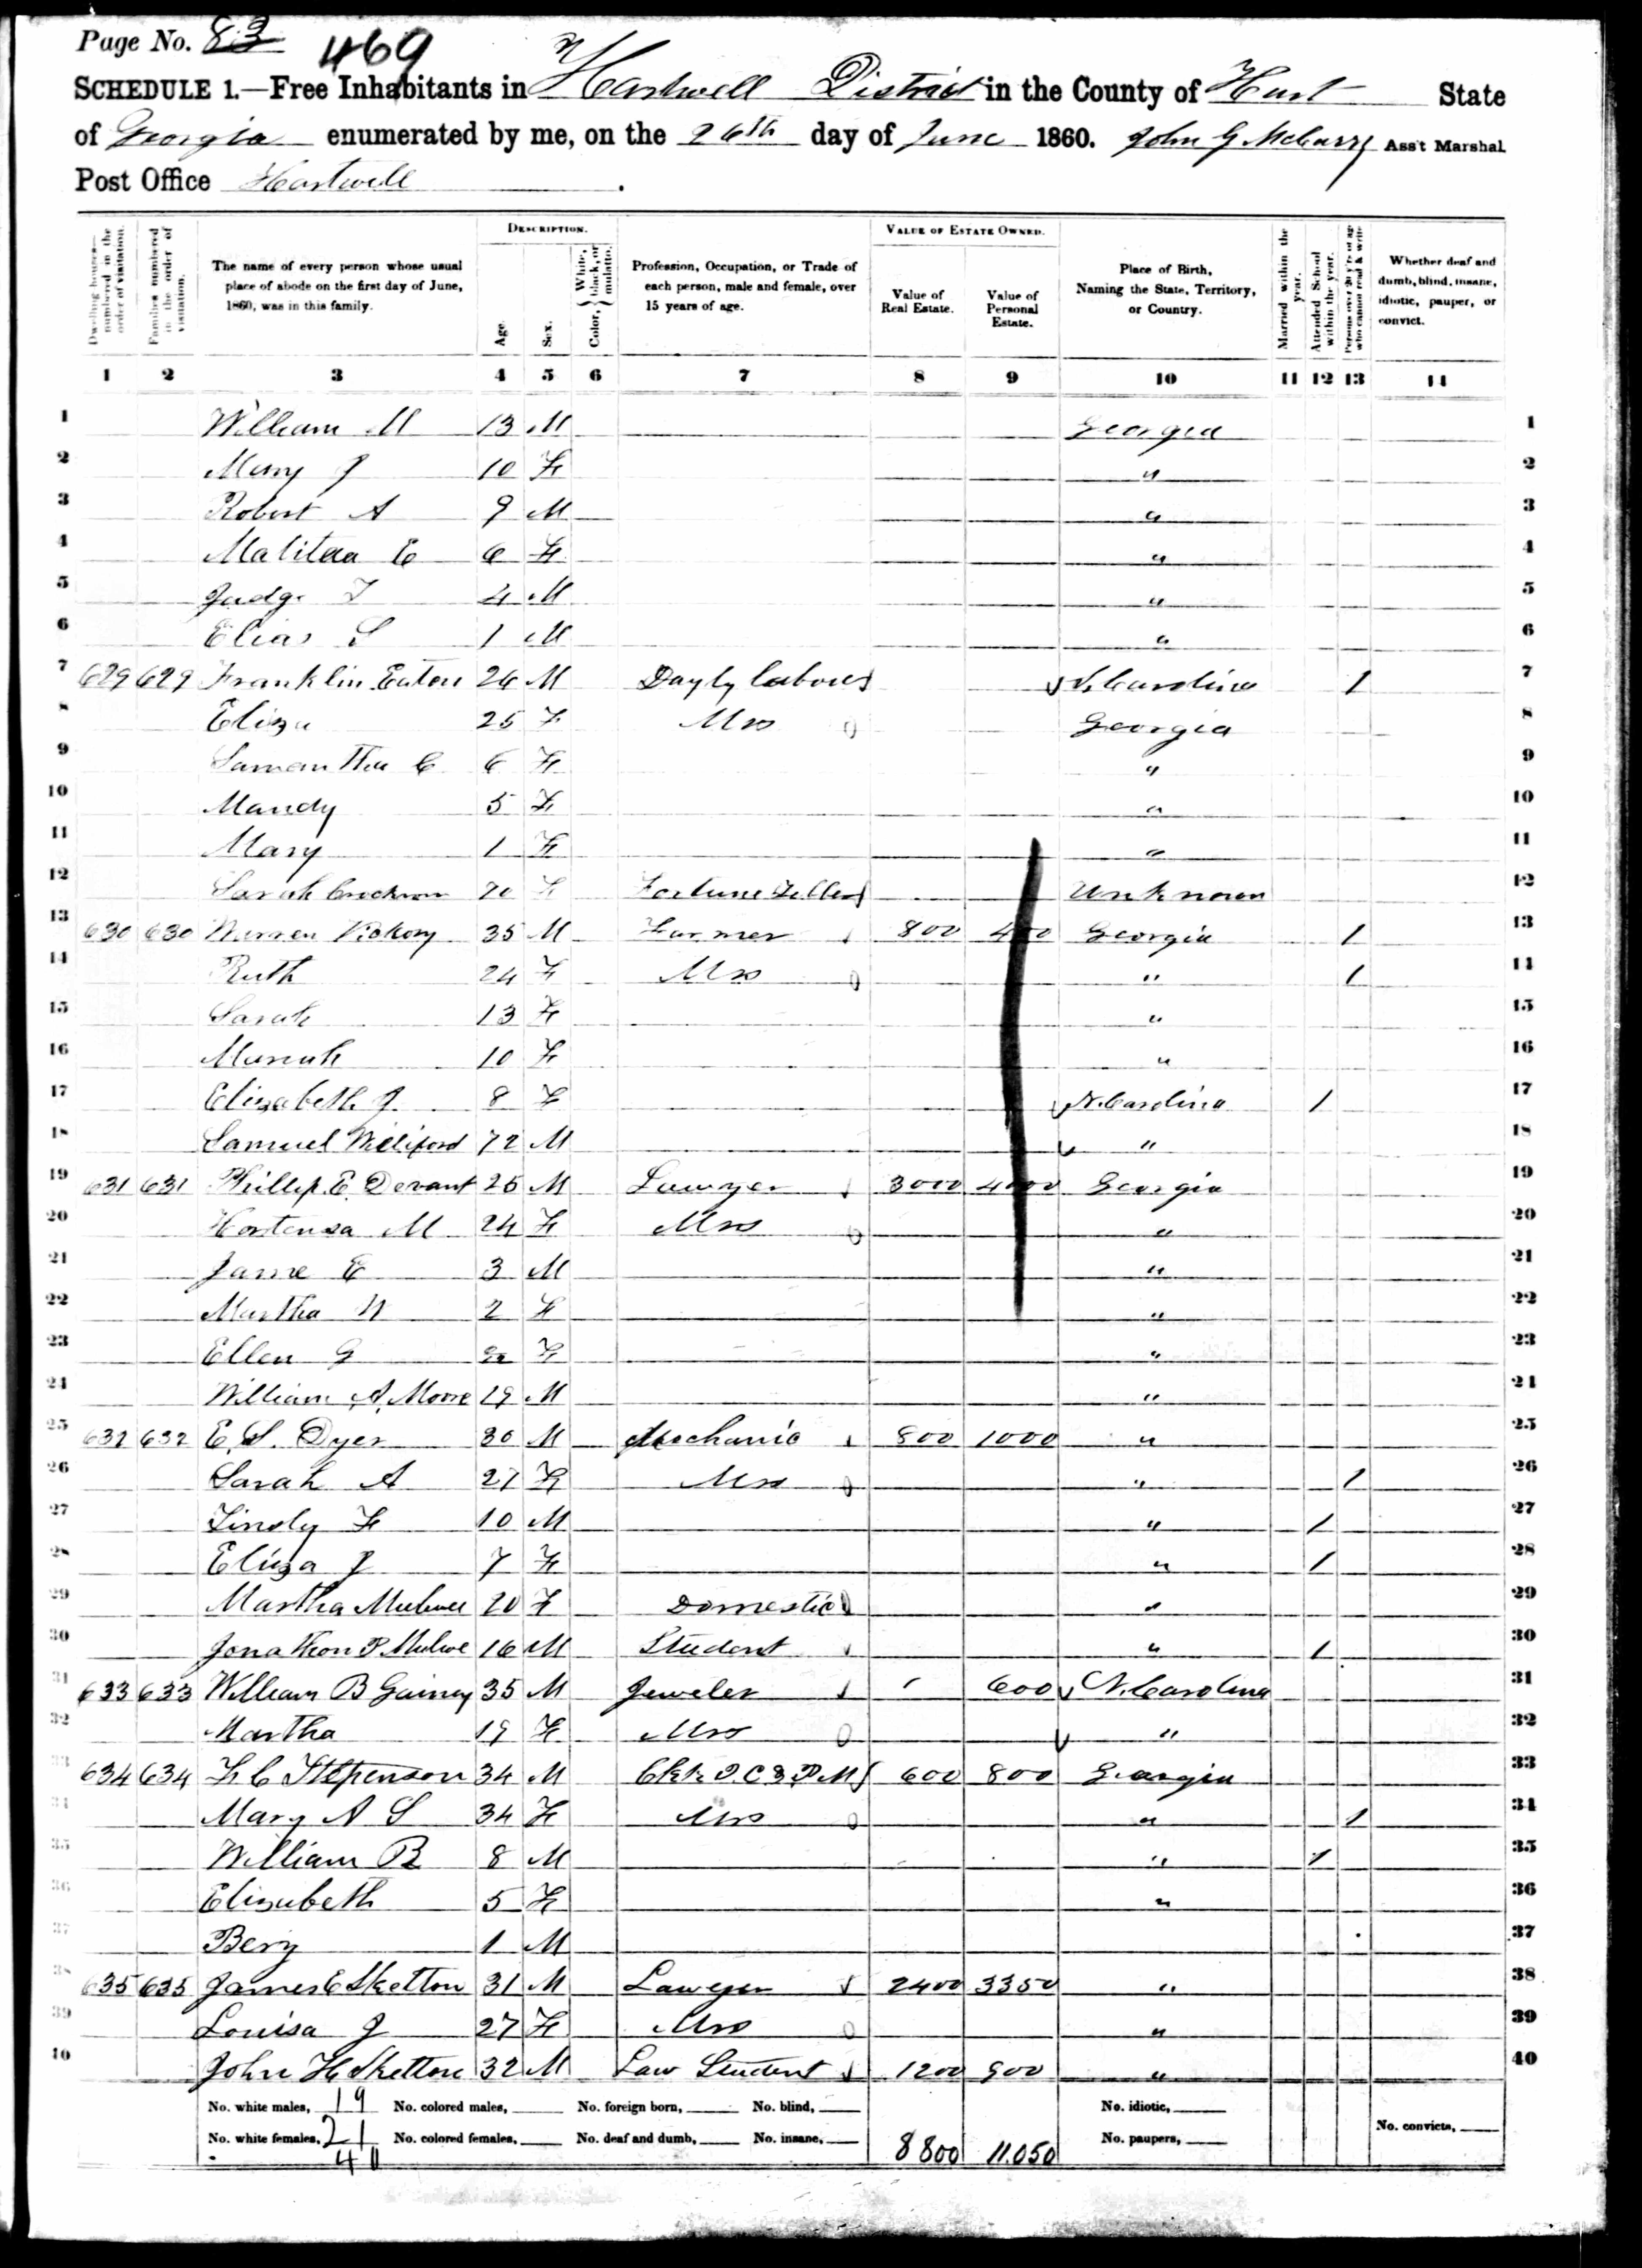 Page No. 83 469
SCHEDULE 1.—Free Inhabitants in Hartwell District in the County of Hart State
of Georgia enumerated by me, on the 26th day of June 1860. John G McCurry Ass't Marshal
Post Office Hartwell
Dwelling houses—numbered in the order of visitation.
Families numbered in the order of visitation.
The name of every person whose usual place of abode on the first day of June, 1860, was in this family.
DESCRIPTION.
Age.
Sex.
Color, { White, black, or mulatto.
Profession, Occupation, or Trade of each person, male and female, over 15 years of age.
VALUE OF ESTATE OWNED.
Value of Real Estate.
Value of Personal Estate.
Place of Birth, Naming the State, Territory, or Country.
Married within the year.
Attended School within the year.
Persons over 20 y'rs of age who cannot read & write.
Whether deaf and dumb, blind, insane, idiotic, pauper, or convict.
1 2 3 4 5 6 7 8 9 10 11 12 13 14
1 William M 13 M Georgia 1
2 Mary J 10 F " 2
3 Robert A 9 M " 3
4 Malitea E 6 F " 4
5 Judge T 4 M " 5
6 Elias S 1 M " 6
7 629 629 Franklin Eaton 26 M Dayly labourer S. Carolina 1 7
8 Eliza 25 F Mrs Georgia 8
9 Samantha C 6 F " 9
10 Mandy 5 F " 10
11 Mary 1 F " 11
12 Sarah 70 F Fortune Teller Unknown 12
13 630 630 Warren Vickory 35 M Farmer 800 400 Georgia 1 13
14 Ruth 24 F Mrs " 1 14
15 Sarah 13 F " 15
16 Mariah 10 F " 16
17 Elizabeth J 8 F N. Carolina 1 17
18 Samuel Williford 72 M " 18
19 631 631 Phillip E. Devant 25 M Lawyer 3000 4000 Georgia 19
20 Hortensa M 24 F Mrs " 20
21 Jame E 3 M " 21
22 Martha N 2 F " 22
23 Ellen G F " 23
24 William A. Moore 19 M " 24
25 632 632 E. S. Dyer 30 M Mechanic 800 1000 " 25
26 Sarah A 27 F Mrs " 1 26
27 Findly F 10 M " 1 27
28 Eliza J 7 F " 1 28
29 Martha 20 F Domestic " 29
30 Jonathon P. 16 M Student " 1 30
31 633 633 William B Gainey 35 M Jeweler 600 N. Carolina 31
32 Martha 19 F Mrs " 32
33 634 634 F C Stepenson 34 M Clk I. C & P M 600 800 Georgia 33
34 Mary A S 34 F Mrs " 1 34
35 William B 8 M " 1 35
36 Elizabeth 5 F " 36
37 Bery 1 M 37
38 635 635 James E Sketton 31 M Lawyer 2400 3350 " 38
39 Louisa J 27 F Mrs " 39
40 John H Sketton 32 M Law Student 1200 900 " 40
No. white males, 19 No. colored males, No. foreign born, No. blind, No. idiotic,
No. white females, 21 No. colored females, No. deaf and dumb, No. insane, 8800 11.050 No. paupers, No. convicts,
40